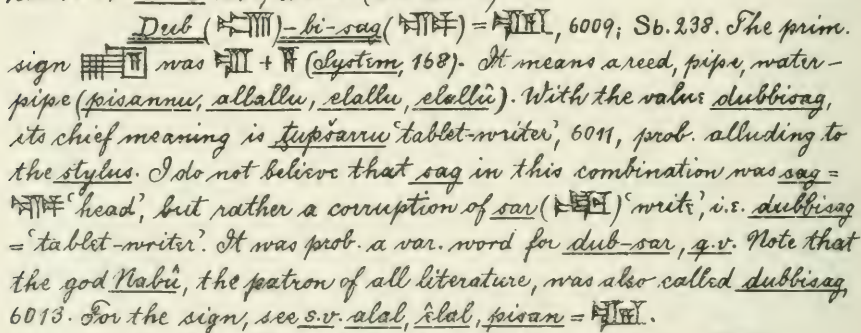 Dub ()-bi-sag () = , 6009; Sb. 238. The prim.
sign was + (System, 168). It means a reed, pipe, water-
pipe (pisannu, allallu, elallu, elallû). With the value dubbisag,
its chief meaning is ṭupšarru 'tablet-writer', 6011, prob. alluding to
the stylus. I do not believe that sag in this combination was sag =
'head', but rather a corruption of sar () 'write', i.e. dubbisag
= 'tablet-writer'. It was prob. a var. word for dub-sar, q.v. Note that
the god Nabû, the patron of all literature, was also called dubbisag,
6013. For the sign, see s.v. alal, êlal, pisan = .